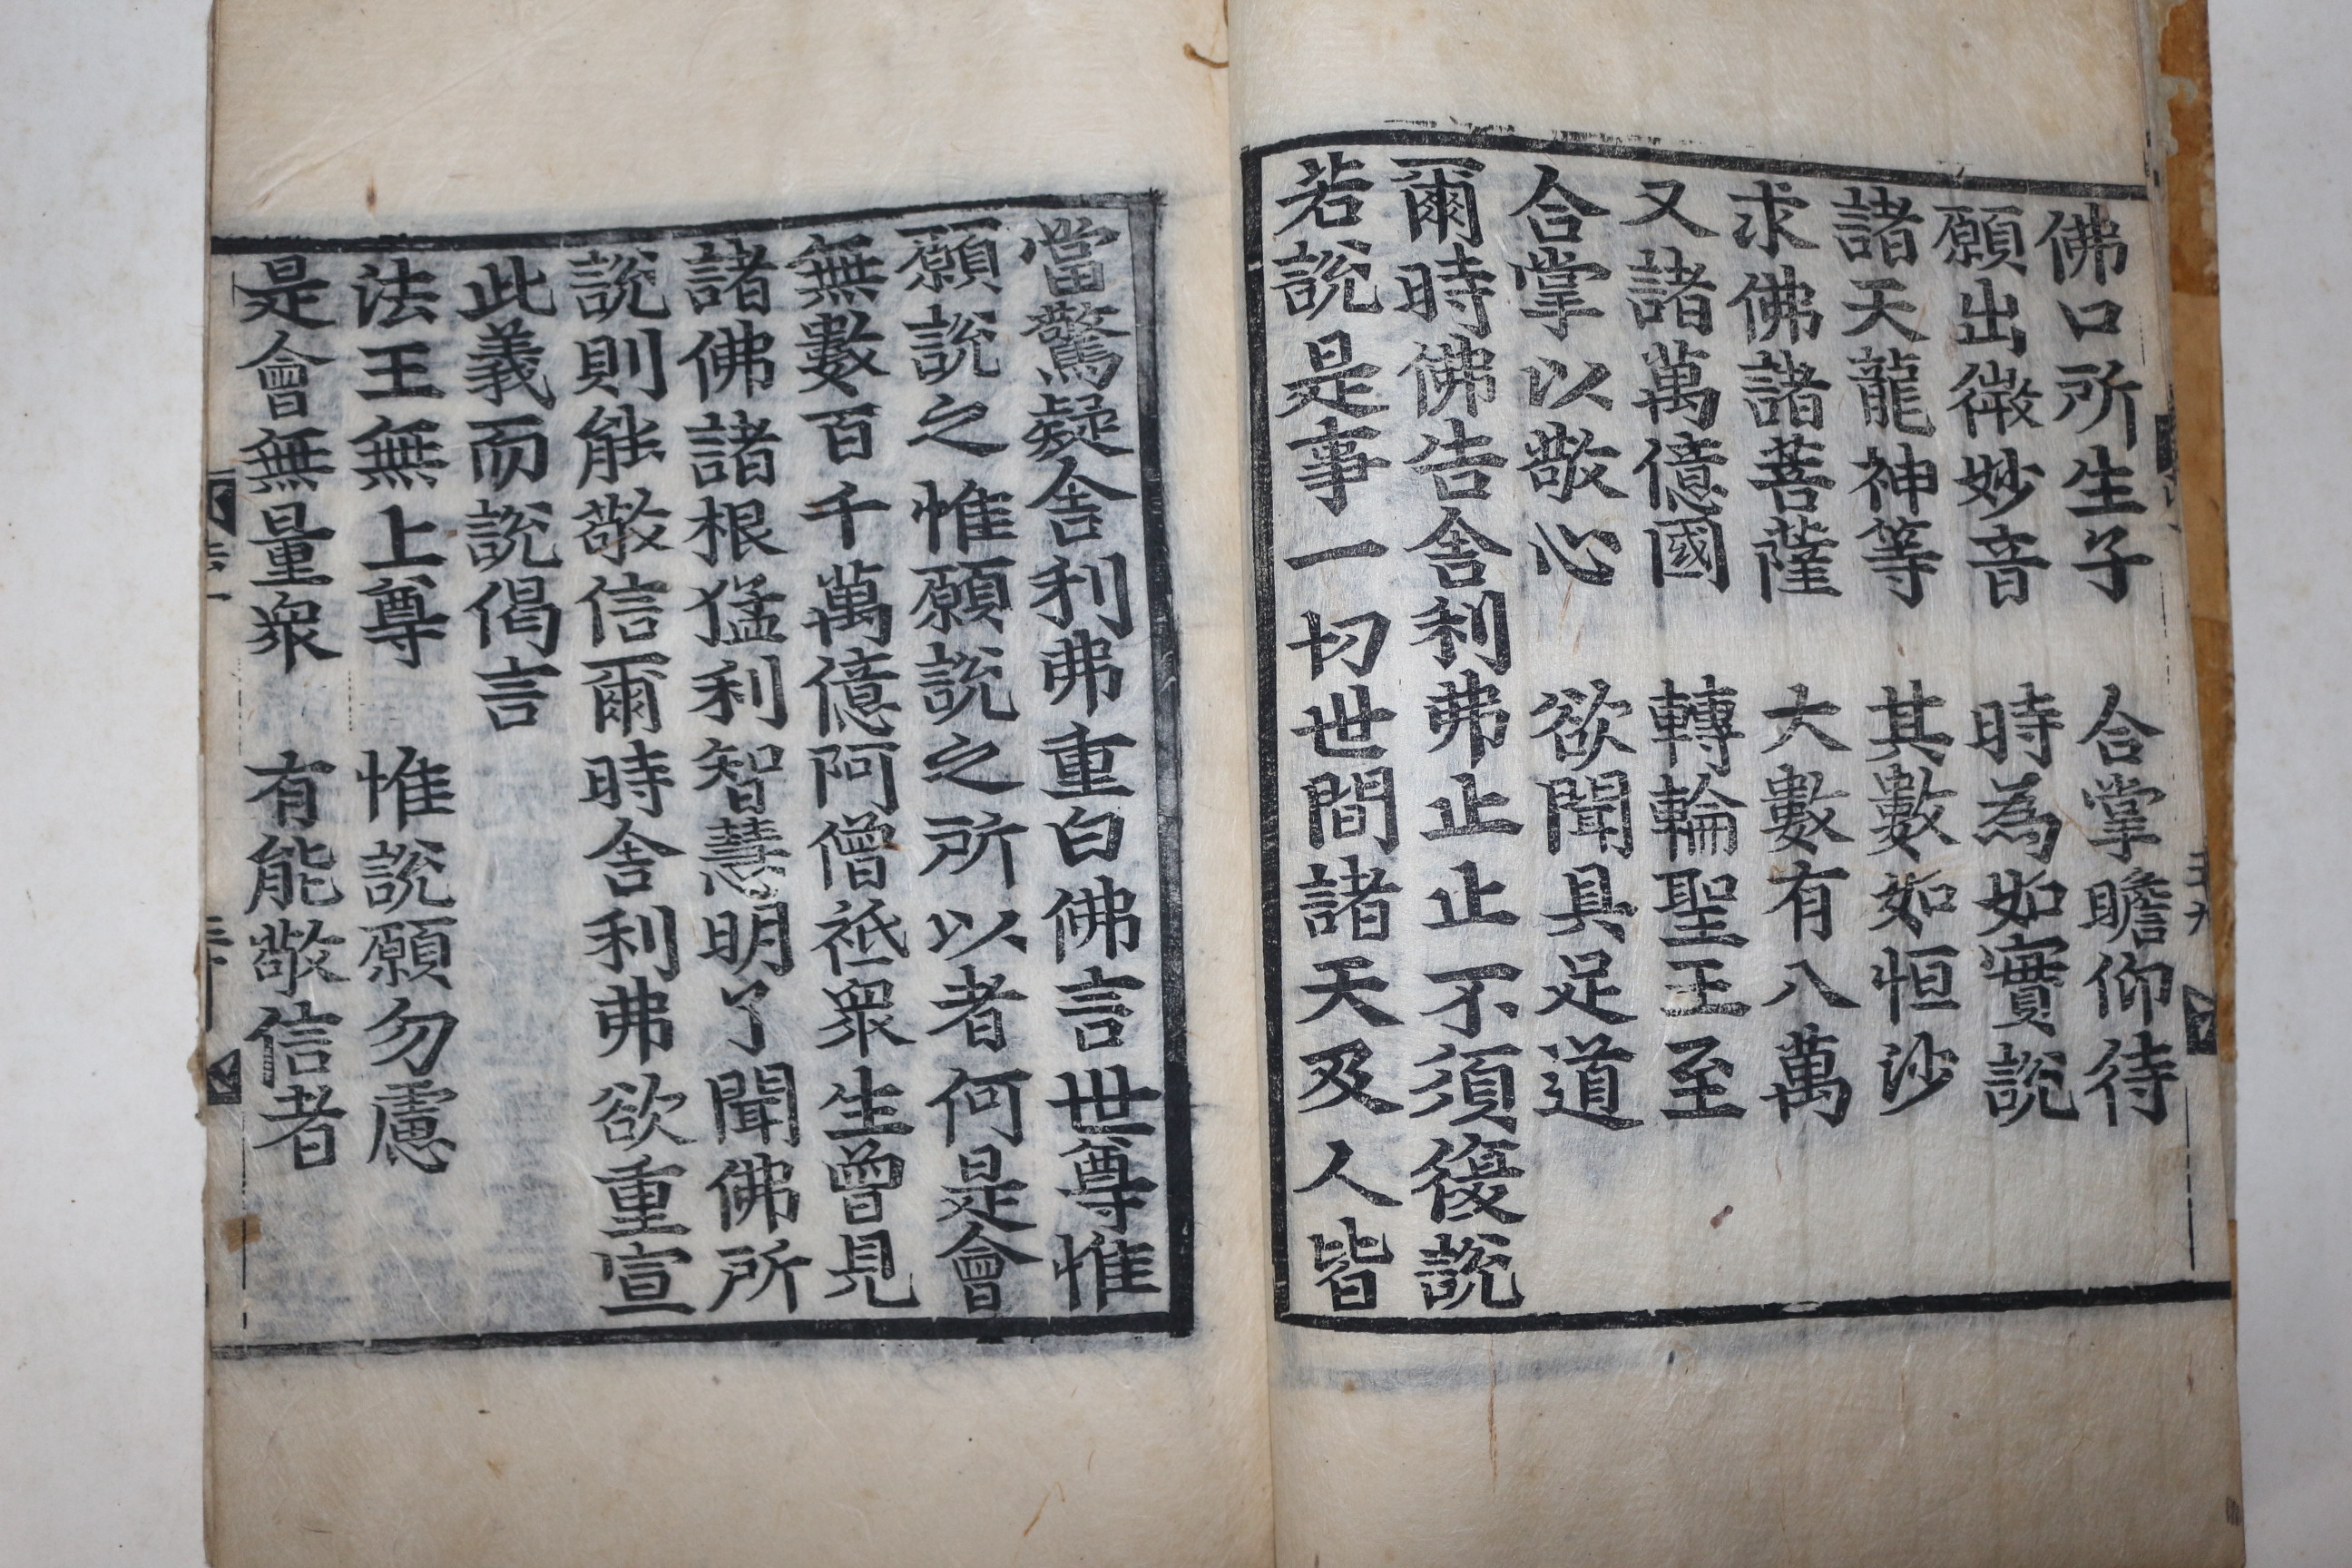 佛口所生子　合掌瞻仰待
願出微妙音　時為如實說
諸天龍神等　其數如恒沙
求佛諸菩薩　大數有八萬
又諸萬億國　轉輪聖王至
合掌以敬心　欲聞具足道
爾時佛告舍利弗止止不須復說
若說是事一切世間諸天及人皆
當驚疑舍利弗重白佛言世尊惟
願說之惟願說之所以者何是會
無數百千萬億阿僧祇衆生曾見
諸佛諸根猛利智慧明了聞佛所
說則能敬信爾時舍利弗欲重宣
此義而說偈言
法王無上尊　惟說願勿慮
是會無量衆　有能敬信者